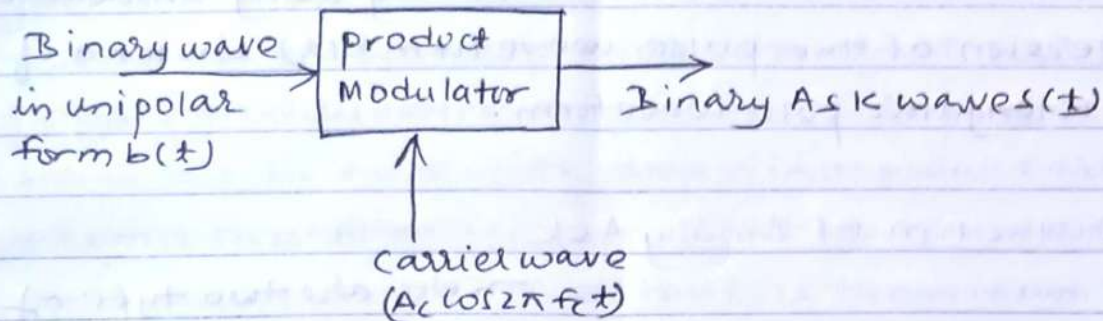 Binary wave
in unipolar
form b(t)
product
Modulator
Binary ASK wave s(t)
carrier wave
(Ac cos2π fct)